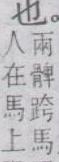 也。
兩髀跨馬
人在馬上